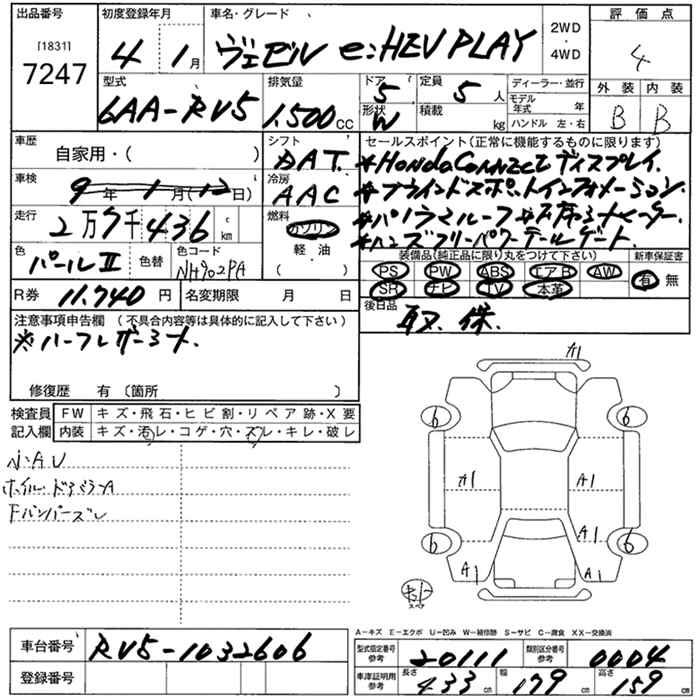 出品番号 初度登録年月 車名・グレード 評価点
[1831] 7247
4 1月 ヴェゼル e:HEV PLAY 2WD・4WD 4
型式 排気量 ドア 定員 ディーラー・並行 外装 内装
6AA-RV5 1.500cc 5 5人 モデル年式 年 B B
形状 W 積載 kg ハンドル 左・右
車歴 シフト セールスポイント(正常に機能するものに限ります)
自家用・( ) DAT ※HondaConnectディスプレイ.
車検 冷房 ※ブラインドスポットインフォメーション.
9年1月(12日) AAC ※パノラマルーフ
走行 2万7千436km 燃料 ガソリン 軽・油 ( ) ※ハンズフリーパワーテールゲート.
色 パールII 色替 色コード NH902PA
装備品(純正品に限り丸をつけて下さい) 新車保証書
PS PW ABS エアB AW 有・無
SR ナビ TV 本革
R券 11.740円 名変期限 月 日 後日品 取.保.
注意事項申告欄 (不具合内容等は具体的に記入して下さい)
※ハーフレザーシート.
修復歴 有 〔箇所 〕
検査員記入欄 FW キズ・飛石・ヒビ割・リペア跡・X要
内装 キズ・汚レ・コゲ・穴・ズレ・キレ・破レ
小AU
ホイル.ドアミラーA
Fバンパーズレ
A1
6 6
A1 A1
A1
6 6
A1 A1
スペア
A-キズ E-エクボ U-凹み W-補修跡 S-サビ C-腐食 XX-交換済
車台番号 RV5-1032606
登録番号
型式指定番号参考 20111 類別区分番号参考 0004
車庫証明用参考 長さ 433cm 幅 179cm 高さ 159cm